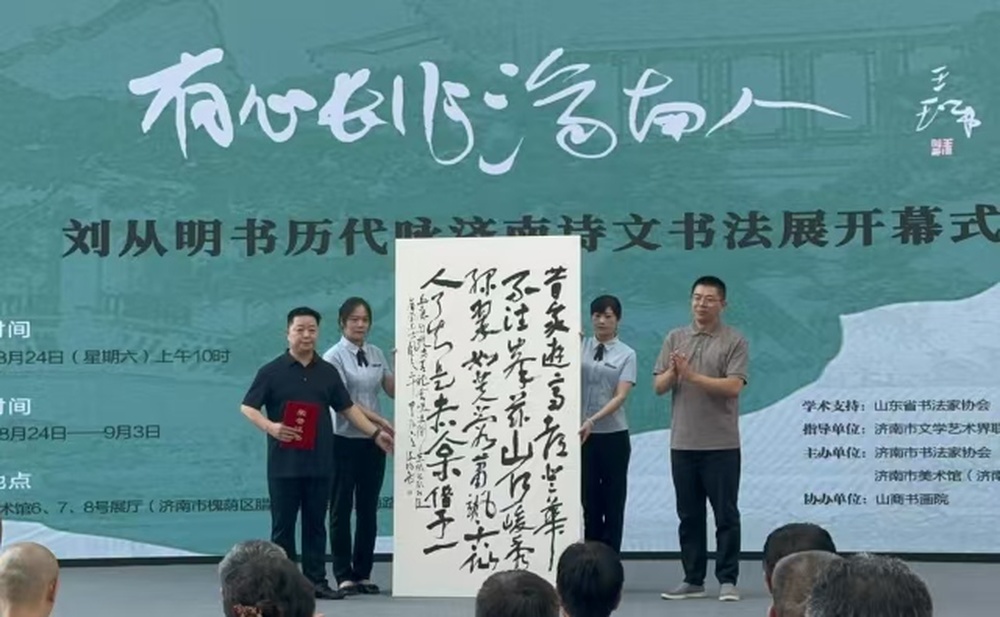 有心长作济南人
刘从明书历代咏济南诗文书法展开幕式
时间
8月24日(星期六)上午10时
时间
8月24日——9月3日
地点
术馆6、7、8号展厅(济南市槐荫区腊
学术支持:山东省书法家协会
指导单位:济南市文学艺术界联
主办单位:济南市书法家协会
济南市美术馆(济南
协办单位:山商书画院
昔我游高齐登华
不注峰兹山何峻秀
绿翠如芙蓉萧飒古仙
人了知是赤松借予一